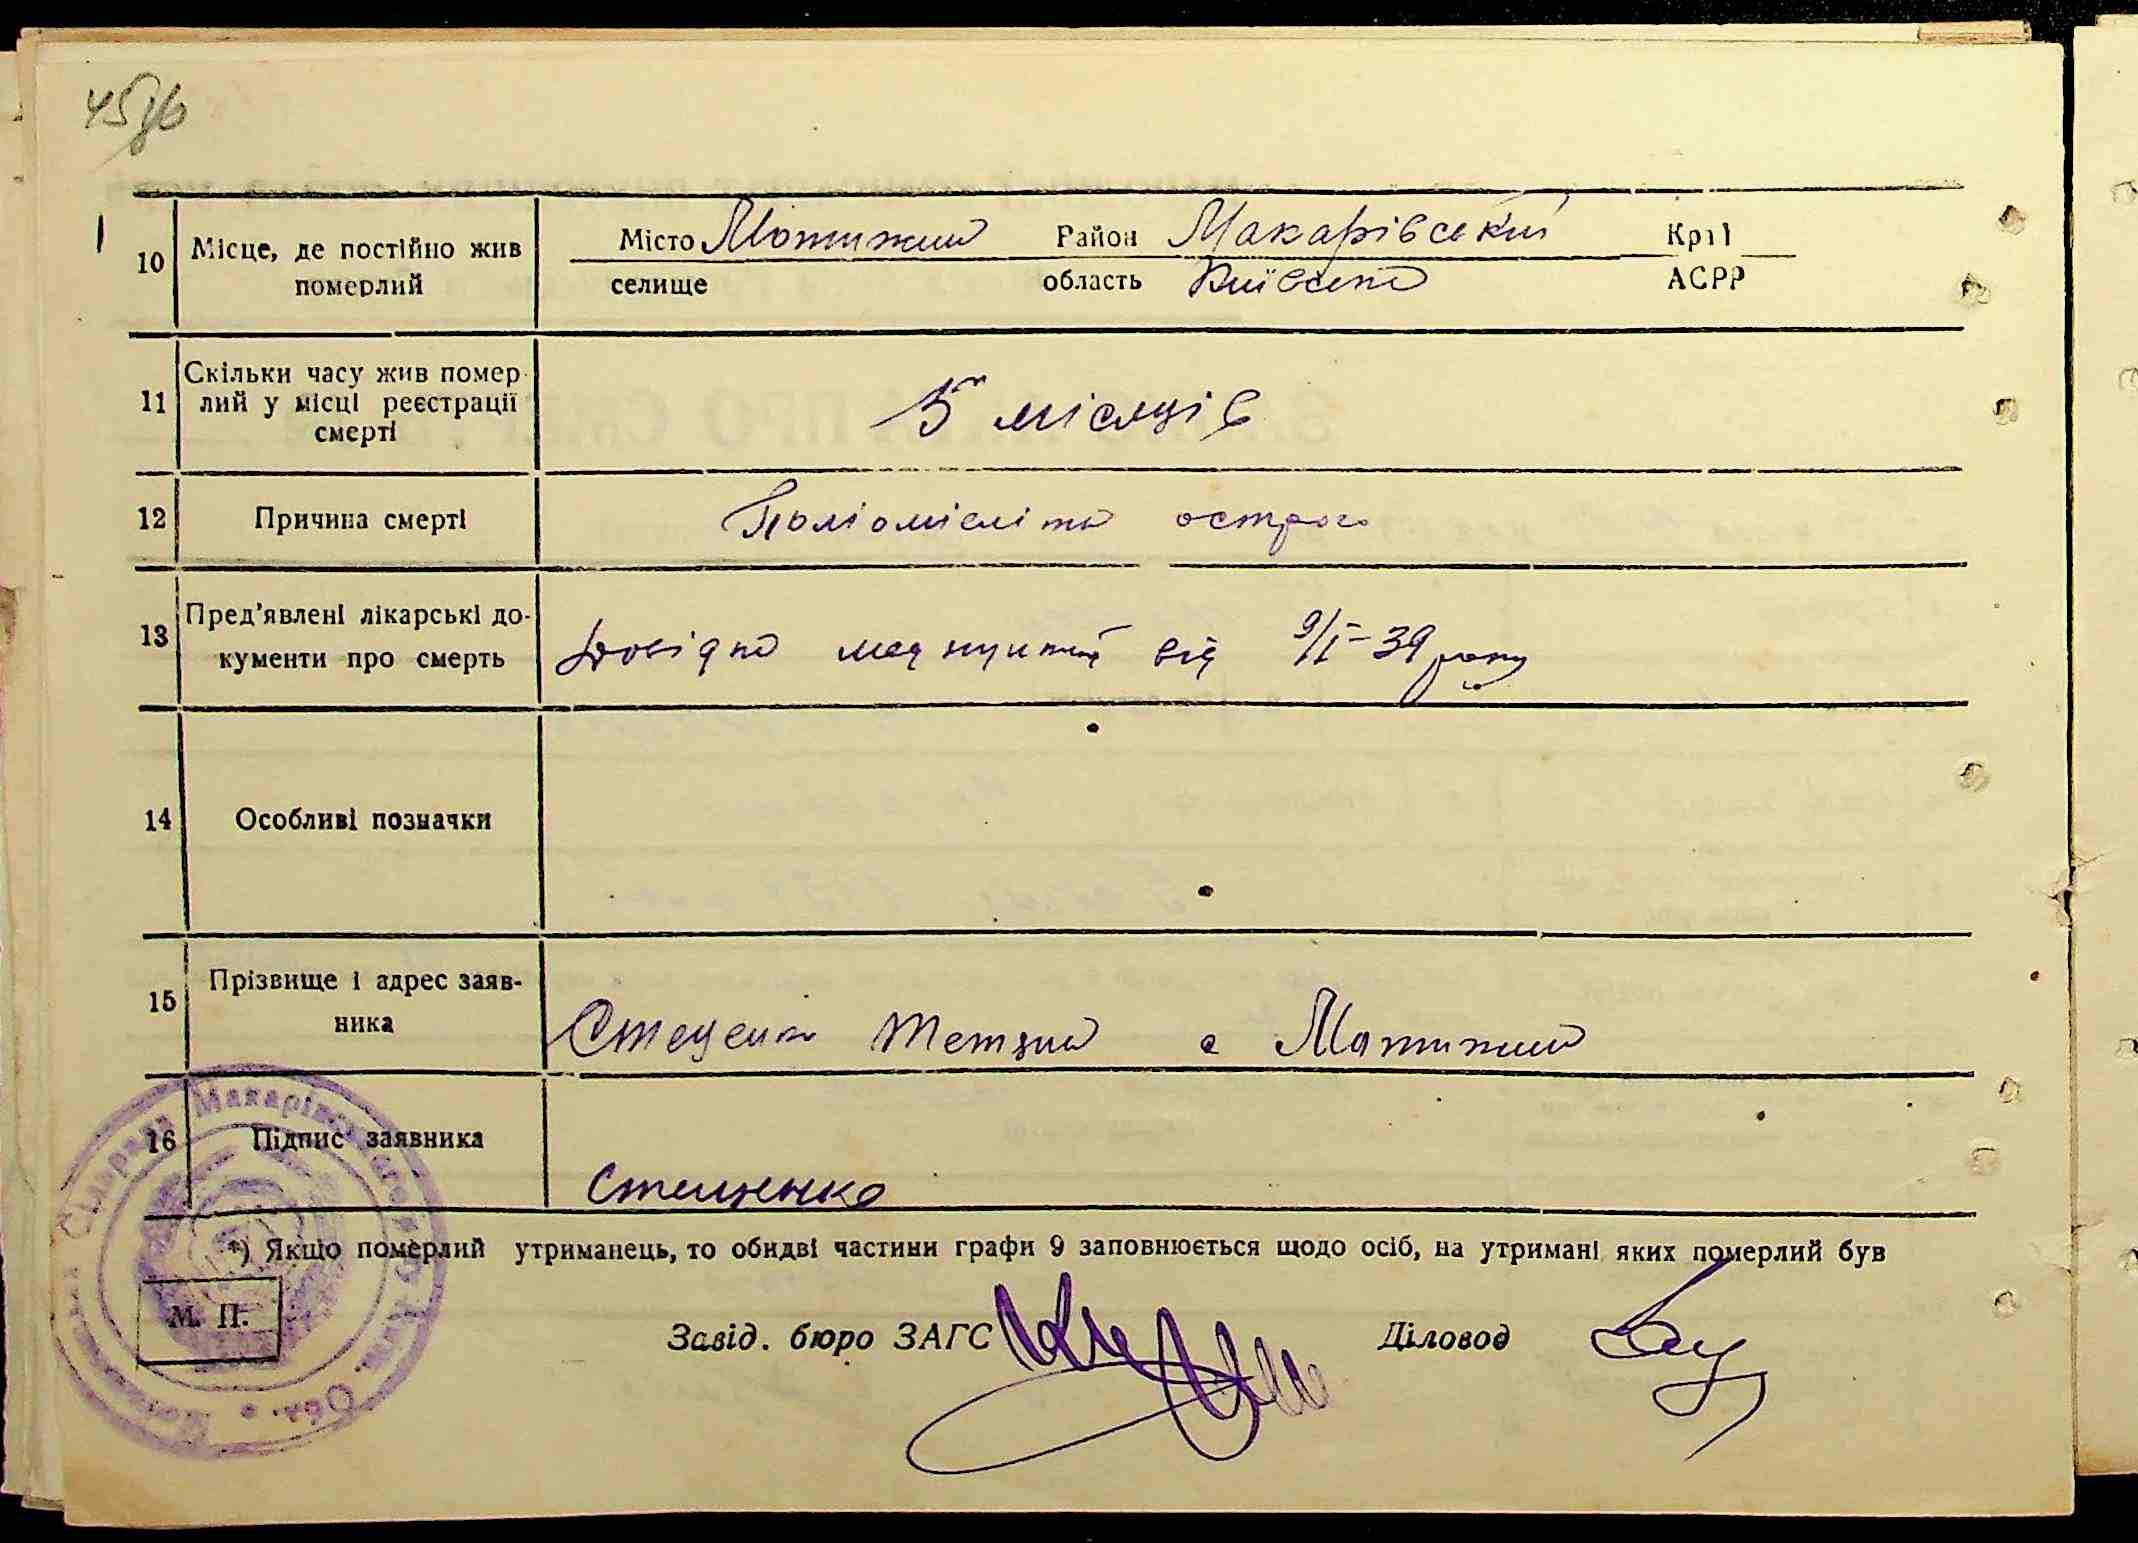 45зв
10 Місце, де постійно жив Місто Мотижин Район Макарівський Край
померлий селище область Київська АСРР
11 Скільки часу жив помер-
лий у місці реєстрації 5 місяців
смерті
12 Причина смерті Поліоміеліта острого
13 Пред'явлені лікарські до-
кументи про смерть Довідка медпункта від 9/I-39 року
14 Особливі позначки
15 Прізвище і адрес заяв-
ника Стеценко Тетяна с Мотижин
16 Підпис заявника
Стеценко
*) Якщо померлий утриманець, то обидві частини графи 9 заповнюється щодо осіб, на утримані яких померлий був
М. П.
Завід. бюро ЗАГС Діловод
Сільрада Макарівського р-ну Київ. Обл.